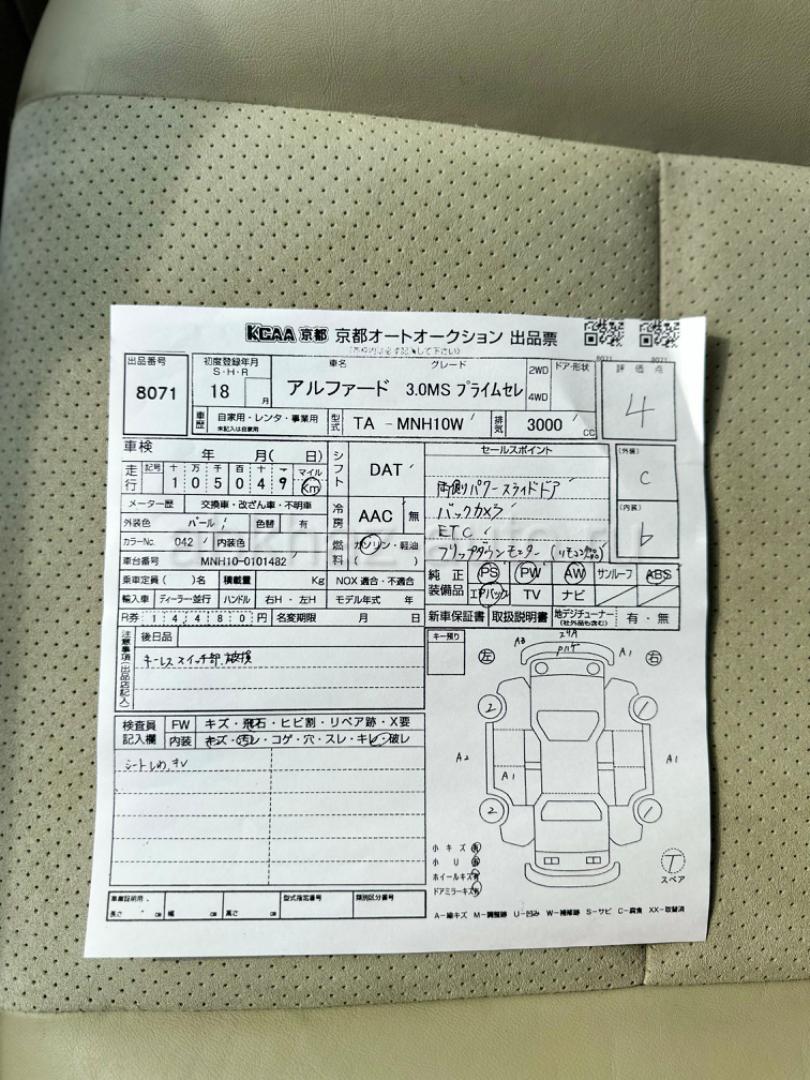 KCAA 京都 京都オートオークション 出品票
(太枠内は必ず記入して下さい)
出品番号 8071
初度登録年月 S・H・R 18 月
車名 アルファード グレード 3.0MS プライムセレ
2WD 4WD ドア・形状
8071 8071
評価点 4
車歴 自家用・レンタ・事業用 未記入は自家用
型式 TA - MNH10W 排気 3000 CC
車検 年 月( 日)
シフト DAT
セールスポイント
(外装) C
走行 記号 十 万 千 百 十 一 マイル Km
1 0 5 0 4 9
両側パワースライドドア
メーター歴 交換車・改ざん車・不明車
冷房 AAC 無
バックカメラ
(内装) b
外装色 パール 色替 有
ETC
カラーNo. 042 内装色
燃料 ガソリン・軽油 ( )
フリップダウンモニター
車台番号 MNH10-0101482
乗車定員( )名 積載量 Kg NOX 適合・不適合
純正装備品 PS PW AW サンルーフ ABS
エアバック TV ナビ
輸入車 ディーラー並行 ハンドル 右H・左H モデル年式 年
R券 14480円 名変期限 月 日
新車保証書 取扱説明書 地デジチューナー (社外品も含む) 有・無
注意事項(出品店記入) 後日品
キーレススイッチ部 破損
キー預り
左 右
A3 A1
2 1
A2 A1 A1
2 1
検査員記入欄 FW キズ・飛石・ヒビ割・リペア跡・X要
内装 キズ・汚レ・コゲ・穴・スレ・キレ・破レ
小キズ 有
小 U 有
ホイールキズ 有
ドアミラーキズ 有
T スペア
車庫証明用 長さ cm 幅 cm 高さ cm 型式指定番号 類別区分番号
A-線キズ M-調整跡 U-凹み W-補修跡 S-サビ C-腐食 XX-取替済